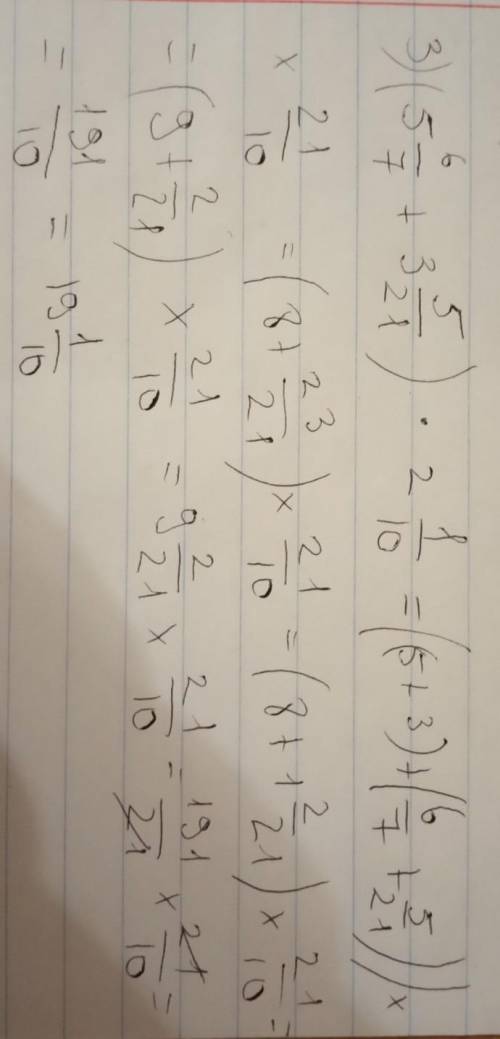 3) (5 6/7 + 3 5/21) · 2 1/10 = ((5 + 3) + (6/7 + 5/21)) ×
× 21/10 = (8 + 23/21) × 21/10 = (8 + 1 2/21) × 21/10 =
= (9 + 2/21) × 21/10 = 9 2/21 × 21/10 = 191/21 × 21/10 =
= 191/10 = 19 1/10